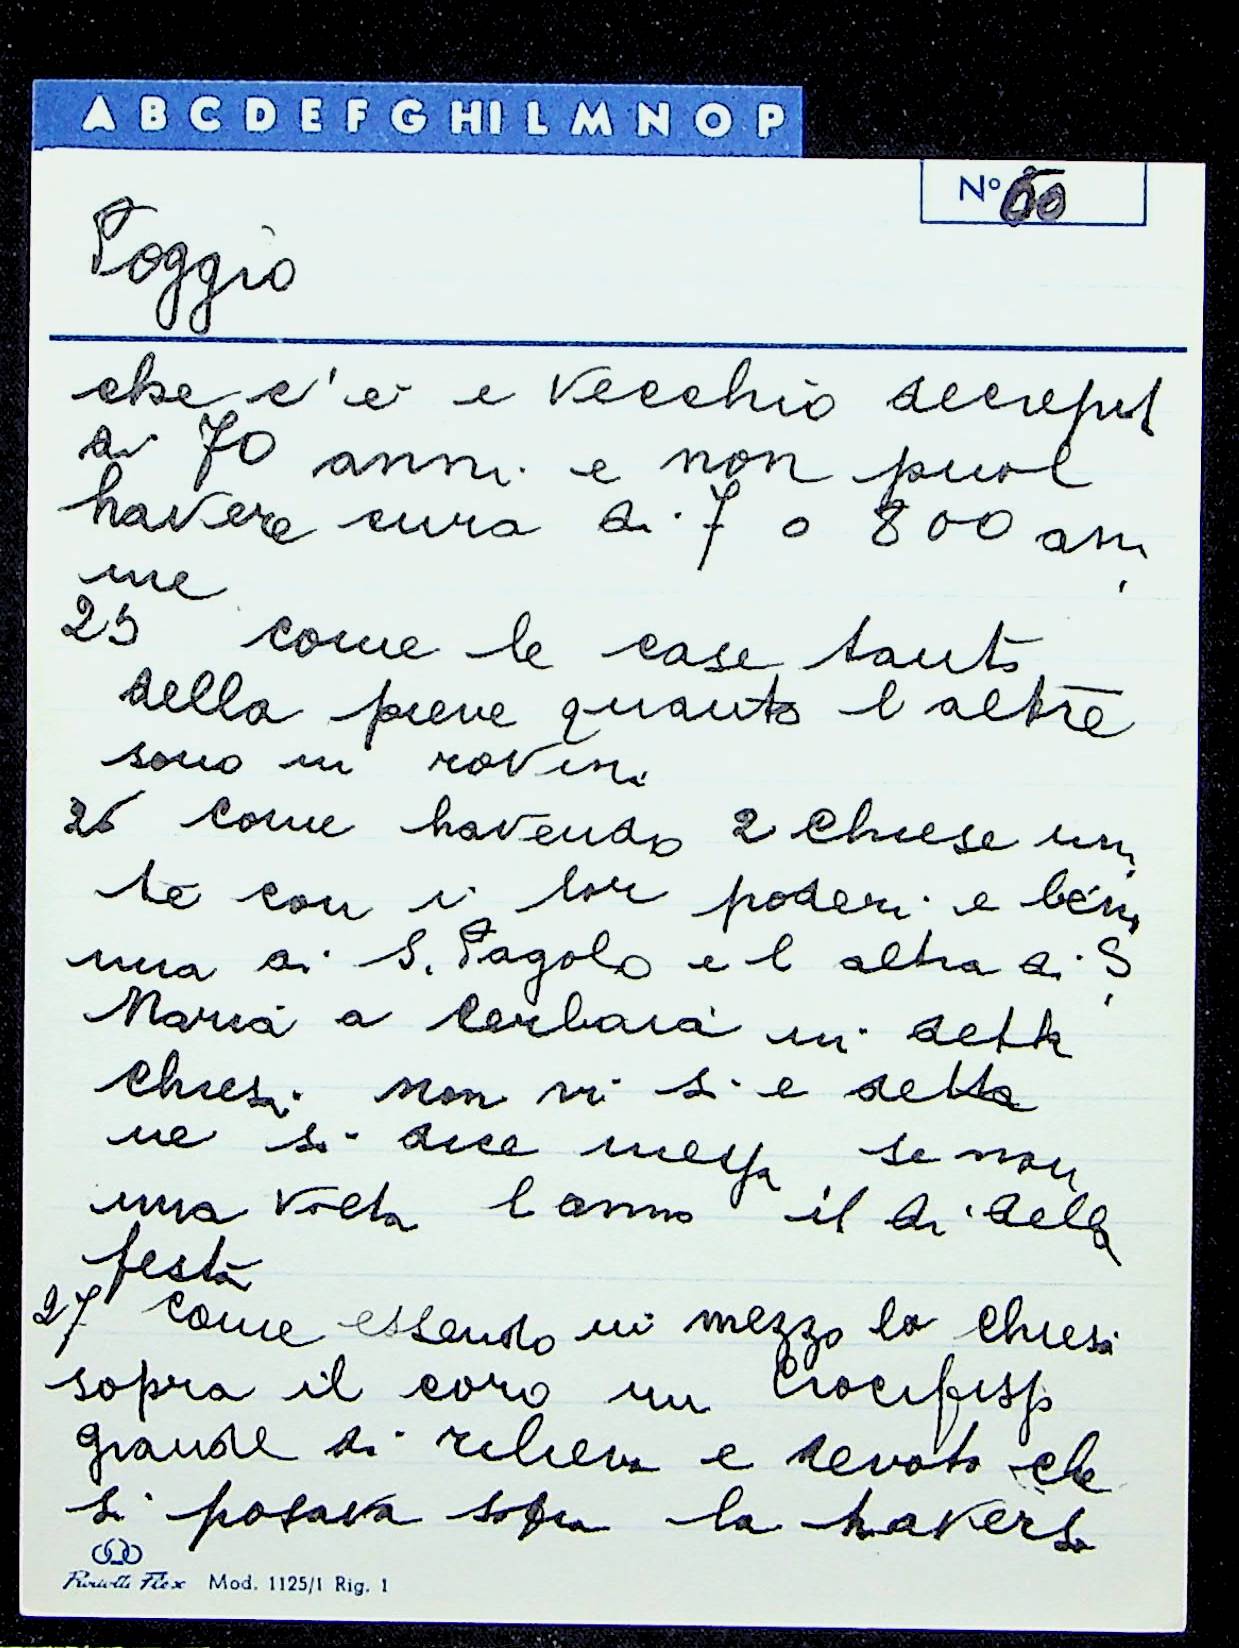 A B C D E F G HI L M N O P
N° 60
Poggio
che c'è e vecchio decrepit
di 70 anni e non puol
havere cura di 7 o 800 ani
me
25 come le case tanto
della pieve quanto l altre
sono in rovina
26 come havendo 2 chiese uni
te con i lor poderi e beni
una di S. Pagolo e l altra di S
Maria a Cerbaia in dette
chiese non vi si e detta
ne si dice messa se non
una volta l anno il di della
festa
27 come essendo in mezzo la chiesa
sopra il coro un Crocifisso
grande di rilievo e devoto che
si posava sopra la traversa
Mod. 1125/1 Rig. 1